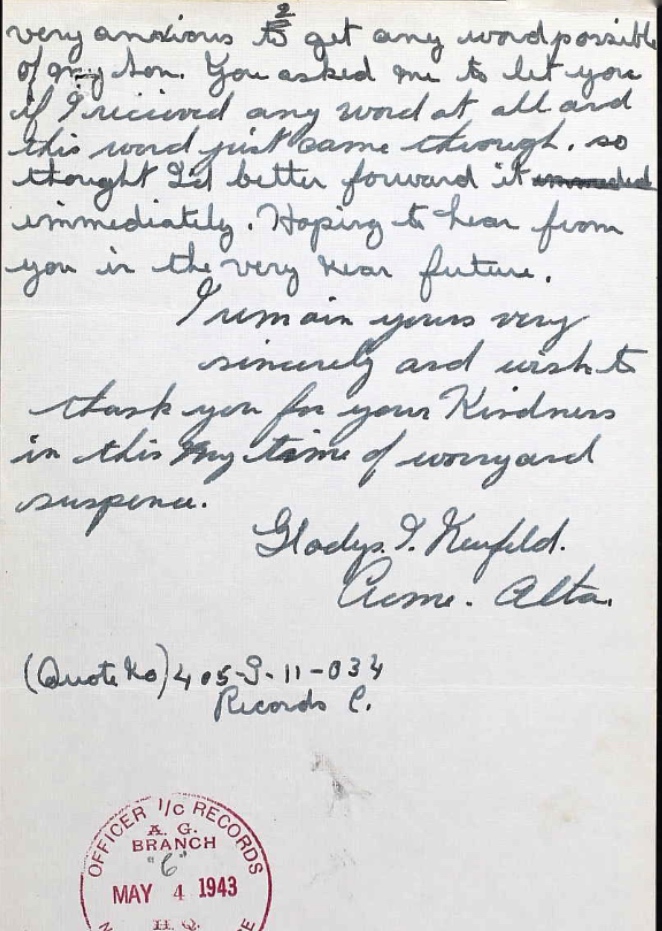 2
very anxious to get any word possible
of my son. You asked me to let you
if I recieved any word at all and
this word just came through. so
thought I'd better forward it
immediately. Hoping to hear from
you in the very near future.
I remain yours very
sincerely and wish to
thank you for your Kindness
in this my time of worry and
suspence.
Gladys. I. Neufeld.
Acme. Alta.
(Quote No) 405-S-11-034
Records C.
OFFICER I/C RECORDS
A. G.
BRANCH
"C"
MAY 4 1943
H.Q.